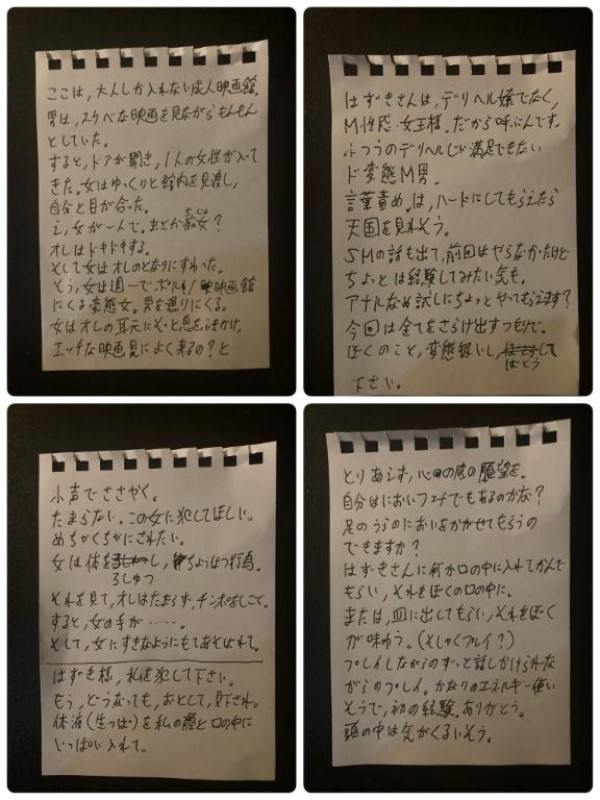 ここは、大人しか入れない成人映画館。
男は、スケベな映画を見ながらもんもん
としていた。
すると、ドアが開き、1人の女性が入って
きた。女はゆっくりと館内を見渡し、
自分と目が合った。
え、女が一人で、まさか痴女?
オレはドキドキする。
そして女はオレのとなりにすわった。
そう、女は週一でポルノ映画館
にくる変態女。男を漁りにくる。
女はオレの耳元にそっと息をふきかけ、
エッチな映画見によく来るの?と
はずきさんは、デリヘル嬢でなく、
M性感・女王様。だから呼ぶんです。
ふつうのデリヘルじゃ満足できない
ド変態M男。
言葉責め。は、ハードにしてもらえたら
天国を見れそう。
SMの話も出て、前回はやらなかったけど
ちょっとは経験してみたい気も。
アナルなめ試しにちょっとやってもらえます?
今回は全てをさらけ出すつもりで。
ぼくのこと、変態扱いし、ばとうして
下さい。
小声でささやく。
たまらない。この女に犯してほしい。
めちゃくちゃにされたい。
女は体をろしゅつし、ちょうはつ行為。
それを見て、オレはたまらず、チンポをしごく。
すると、女の手が……。
そして、女にすきなようにもてあそばれて。
はずき様、私を犯して下さい。
もう、どうなっても、おとして、見下され。
体液(生つば)を私の顔と口の中に
いっぱい入れて。
とりあえず、心の底の願望を。
自分はにおいフェチでもあるのかな?
足のうらのにおいをかがせてもらうの
できますか?
はずきさんに何か口の中に入れてかんで
もらい、それをぼくの口の中に。
または、皿に出してもらい、それをぼく
が味わう。(そしゃくプレイ?)
プレイしながらのずっと話しかけられな
がらのプレイ。かなりのエネルギー使い
そうで、初の経験。ありがとう。
頭の中は気がくるいそう。